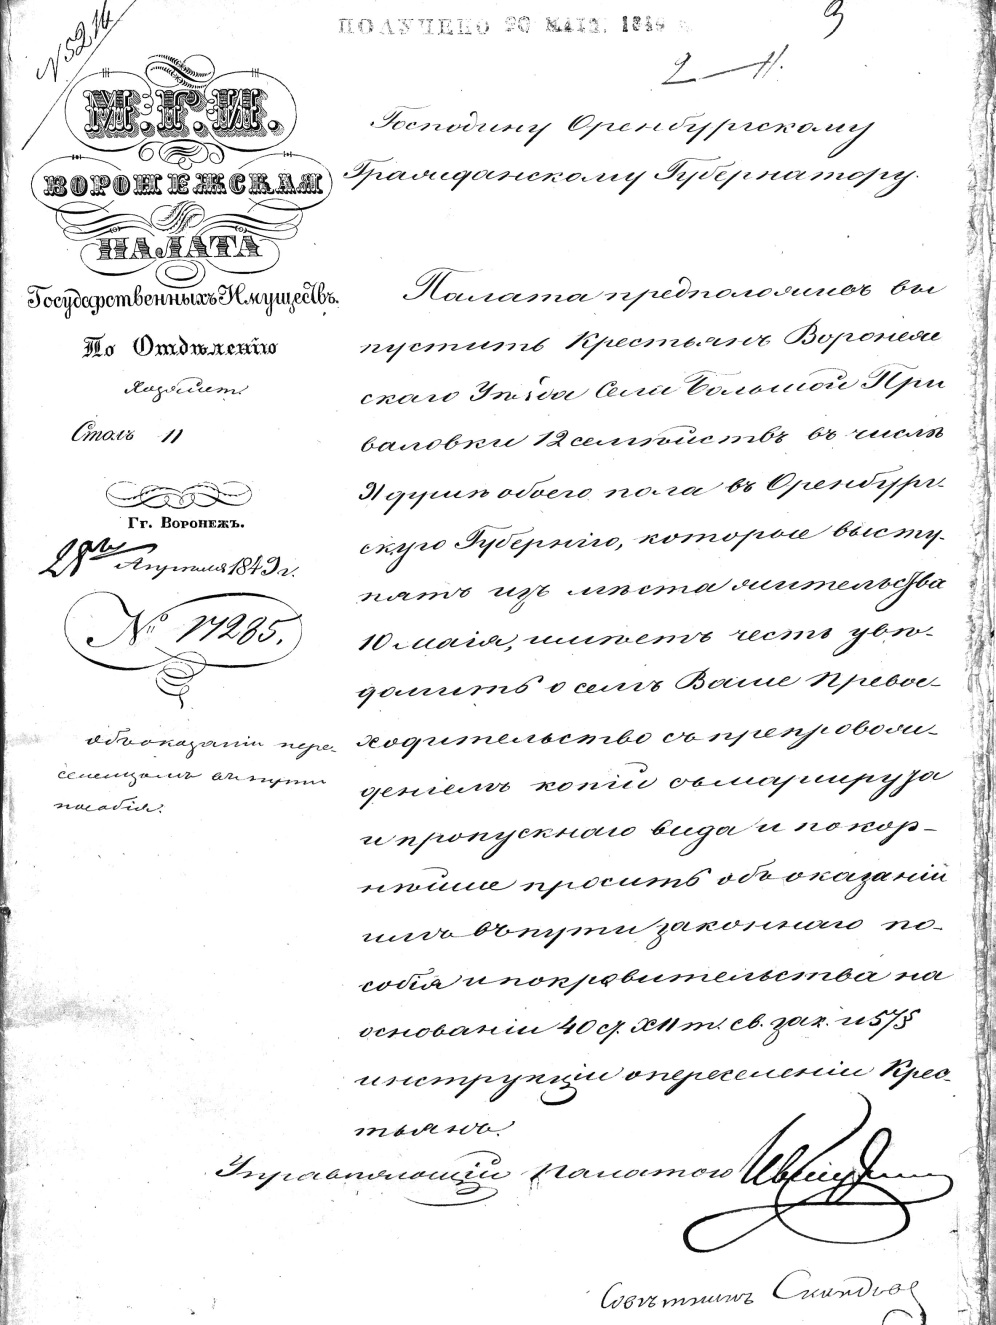 ПОЛУЧЕНО 20 МАІЯ. 1849
3
N 5214
2 — 11.
М.Г.И.
ВОРОНЕЖСКАЯ
ПАЛАТА
Государственныхъ Имуществъ.
По Отдѣленію
Хозяйст.
Столъ 11
Гг. Воронежъ.
28го Апреля 1849 г.
№ 17285.
Объ оказаніи пере-
селенцамъ въ пути
пособія.
Господину Оренбургскому
Гражданскому Губернатору.
Палата предположивъ вы
пустить Крестьянъ Воронеж
скаго Уѣзда Села Большой При
валовки 12 семѣйствъ въ числѣ
91 душъ обоего пола въ Оренбург-
скую Губернію, которые высту-
пятъ изъ мѣста жительства
10 маія, имѣетъ честь увѣ-
домить о семъ Ваше Превос-
ходительство съ препровож-
деніемъ копій съ маршруза
и пропускнаго вида и покор-
нѣйше просить объ оказаніи
имъ въ пути законнаго по-
собія и покровительства на
основаніи 40 ст. XII т. св. зак. и 57 §
инструкціи о переселеніи Крес-
тьянъ.
Управляющій Палатою
Совѣтникъ